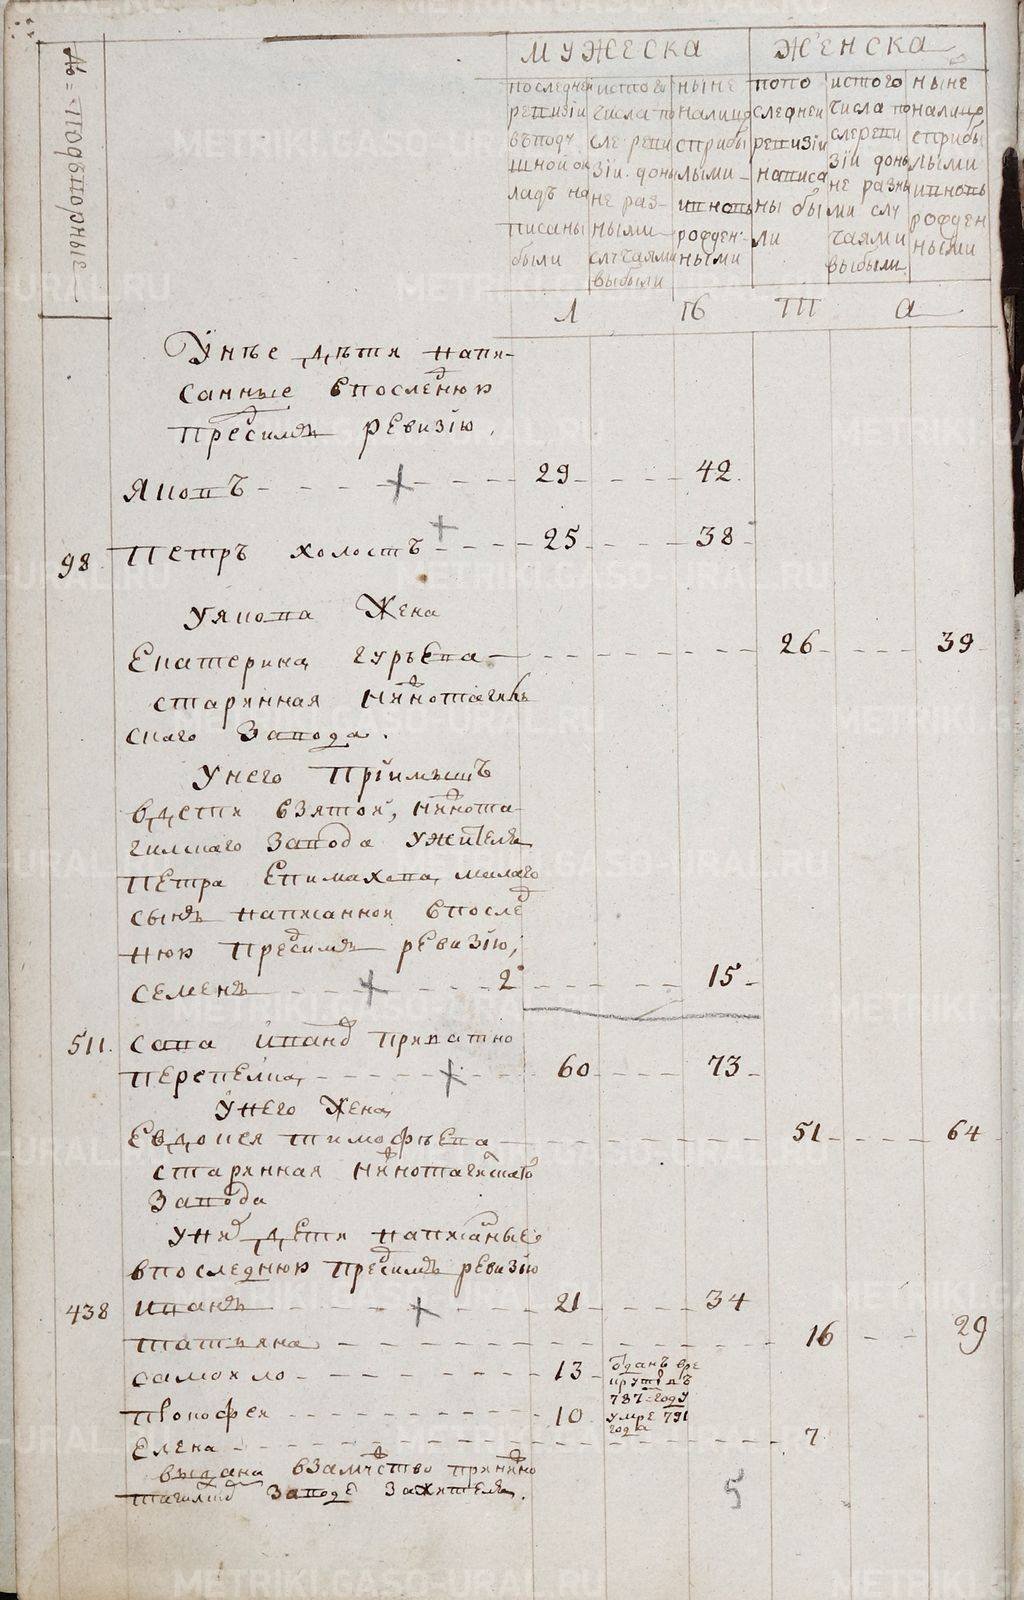 № подворные
МУЖЕСКА
ЖЕНСКА
последней ревизіи въ подушной окладъ написаны были
ис того числа после ревизіи до ныне разными случаями выбыли
ныне на лицо с прибылыми и вновь рожденными
по последней ревизіи написаны были
ис того числа после ревизіи до ныне разными случаями выбыли
ныне на лицо с прибылыми и вновь рожденными
Л Ѣ Т А
У нѣе дѣти напи-
санные в последнюю
пред симъ ревизію
Яковъ 29 42
98 Петръ холостъ 25 38
У Якова Жена
Екатерина Гурьева 26 39
старинная Нижнотагиль
скаго Завода.
У него пріимышъ
в дети взятой, Нижнота-
гилскаго Завода у жителя
Петра Епимахова малаго
сынъ написанной в послед
нюю пред симъ ревизію,
Семенъ 2 15
511. Сава Иванов приватно
Перепелка 60 73
У него Жена
Евдокея Тимофѣева 51 64
старинная Нижнотагилскаго
Завода
У них дети написаные
в последнюю пред симъ ревизію
438 Иванъ 21 34
Татьяна 16 29
Самойло 13 отданъ в ре
круты въ
787 году
Прокофей 10 умре 791
года
Елена 7
выдана в замужство при Нижно
тагилском Заводе За жителя.
5
METRIKI.GASO-URAL.RU